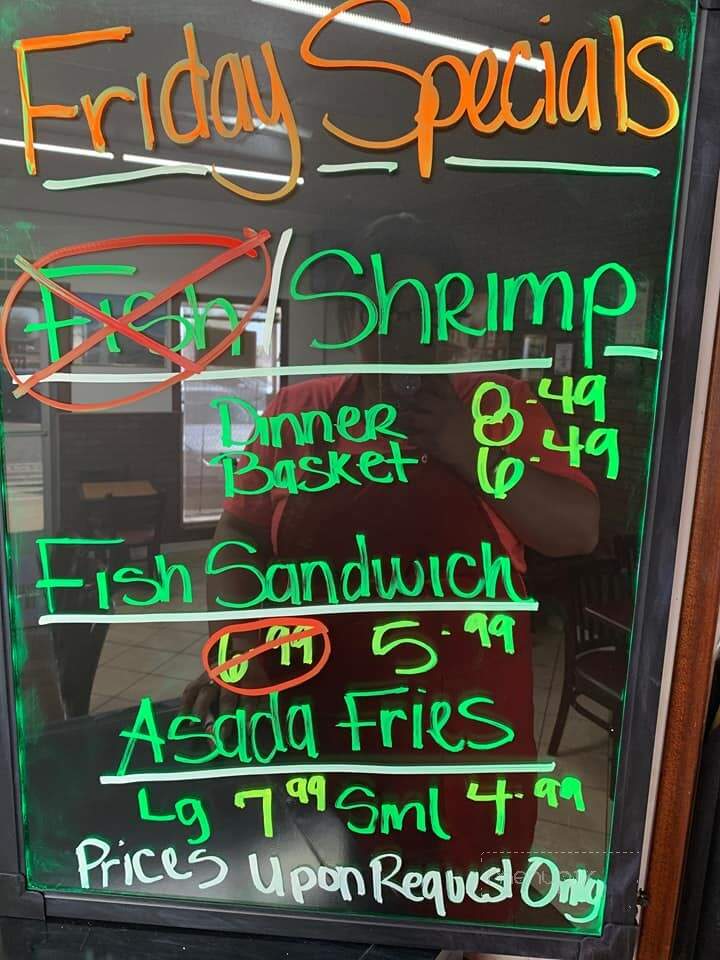 Friday Specials
Fish/Shrimp
Dinner 8.49
Basket 6.49
Fish Sandwich
6.99 5.99
Asada Fries
Lg 7.99 Sml 4.99
Prices Upon Request Only